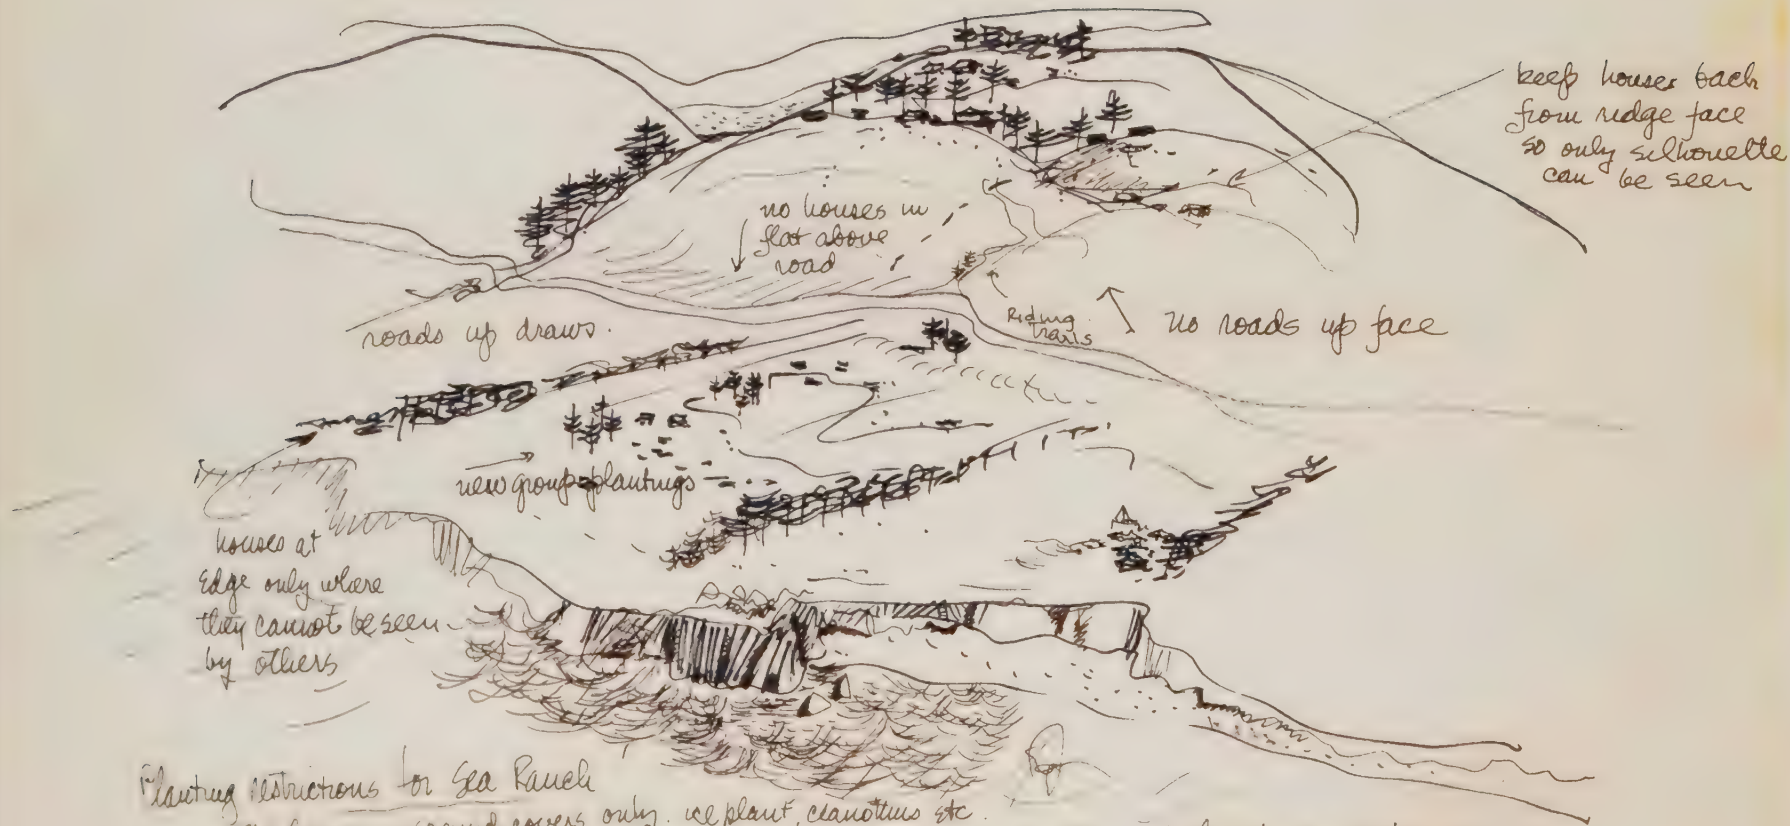 keep houses back
from ridge face
so only silhouette
can be seen
no houses in
flat above
road
roads up draws.
Riding
trails
no roads up face
new group plantings
houses at
Edge only where
they cannot be seen
by others
Planting restrictions for Sea Ranch
ground covers only. ice plant, cianothus etc.